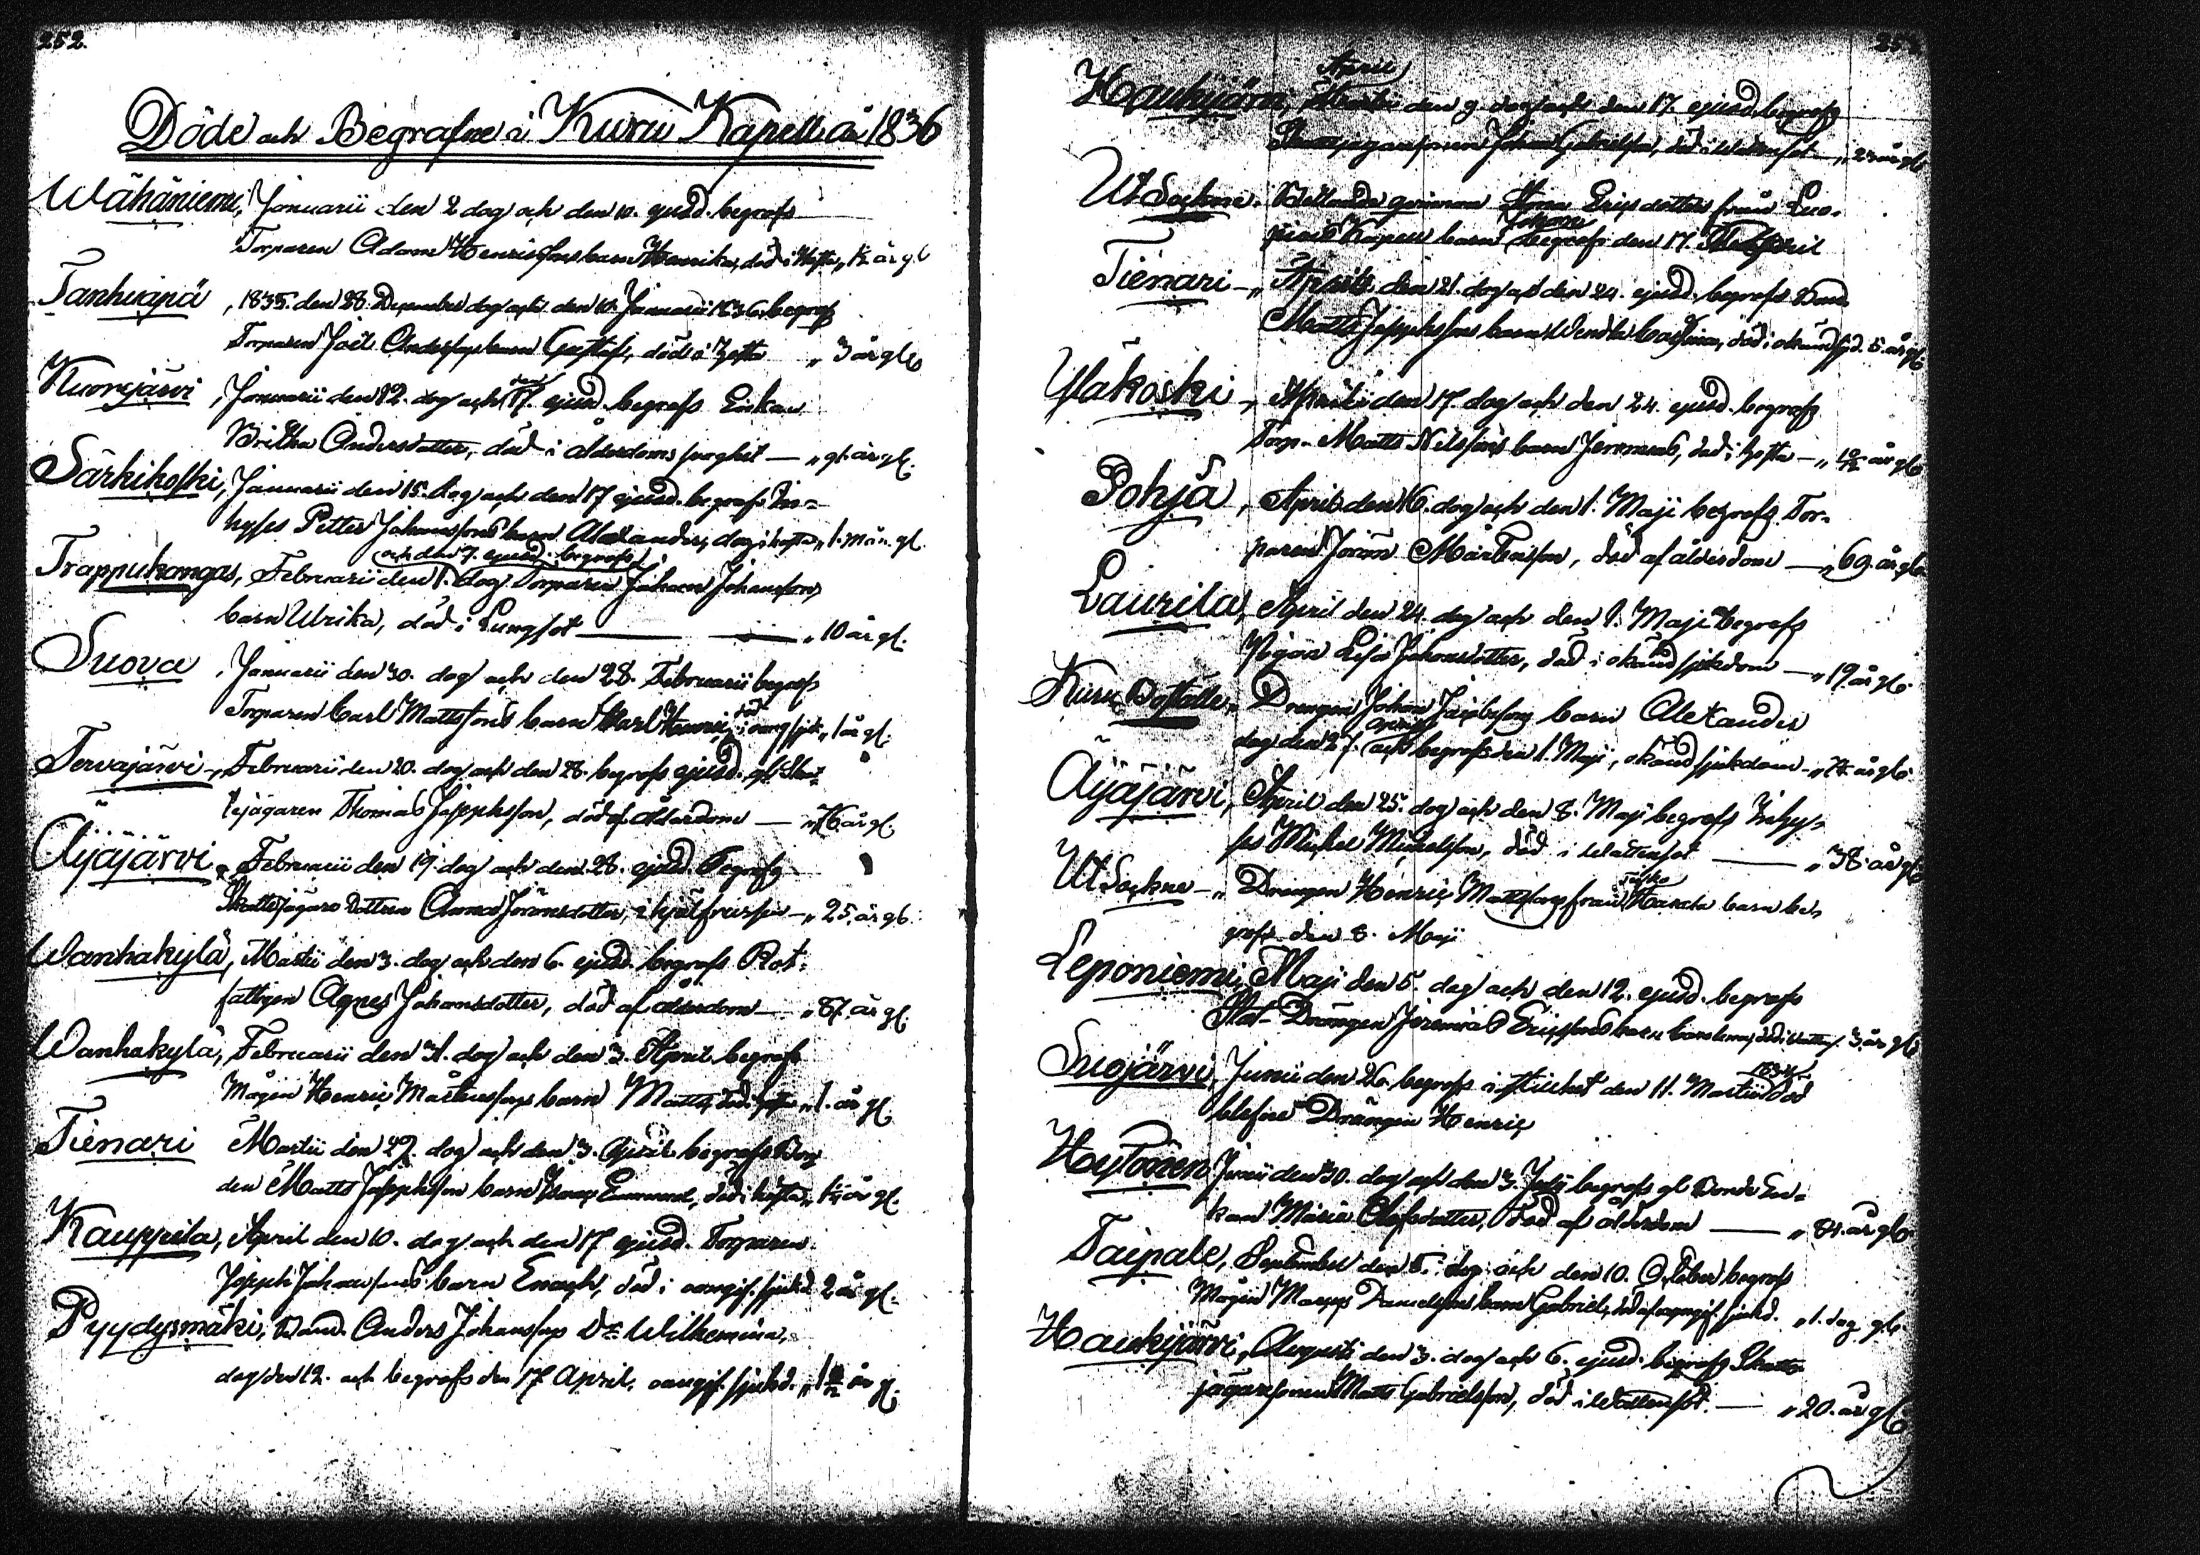 252.
Döde och Begrafne i Kuru Kapell år 1836
Wähäniemi, Januarii den 2 dog och den 10. ejusd. begrafs
Torparen Adam Henricssons barn Henrika, död i Hosta, ½ år gl
Tanhuapä, 1835. den 28. December dog och den 10. Januarii 1836. begrafs
Torparen Joel Anderssons barn Gustaf, död i hosta „ 3 år gl
Kuorejärvi, Januarii den 12. dog och den 17. ejusd. begrafs Enkan
Britha Andersdotter, död i ålderdoms svaghet — „ 91 år gl.
Särkikoski, Januarii den 15. dog och den 17 ejusd. begrafs In=
hyses Petter Johanssons barn Alexander, dog i hosta „ 1. mån. gl.
och den 7. ejusd. begrafs
Trappukangas, Februarii den 1. dog Torparen Johan Johansson
barn Ulrika, död i Lungsot — „ 10 år gl.
Suova, Januarii den 30. dog och den 28. Februarii begrafs
Torparen Carl Mattssons barn Karl Henric, död i oang sjuk „ 1 år gl.
Tervajärvi, Februarii den 20. dog och den 28. begrafs ejusd. gl. Skat=
tejägaren Thomas Josephsson, död af ålderdom — „ 76 år gl.
Äijäjärvi, Februarii den 19. dog och den 28. ejusd. begrafs
Skattejägare dottren Anna Jöransdotter, ihjälfrusen — „ 25. år gl.
Wanhakylä, Martii den 3. dog och den 6. ejusd. begrafs Rot=
fattigen Agnes Johansdotter, död af ålderdom — „ 87. år gl.
Wanhakylä, Februarii den 31. dog och den 3. April begrafs
Mågen Henric Mårtenssons barn Matts, död i hosta „ 1. år gl.
Tienari Martii den 27. dog och den 3. April begrafs Bon
den Matts Josephsson barn Isaac Emanuel, död i hosta „ 1¼ år gl.
Kauppila, April den 10. dog och den 17 ejusd. Torparen
Joseph Johanssons barn Enoch, död i oangif. sjukd. 2 år gl.
Pyydysmäki, Bond. Anders Johanssons Dr. Wilhemina,
dog den 12. och begrafs den 17 April, oangif. sjukd. „ 1 år gl.
April
Haukijärvi, Martii den 9. dog och den 17. ejusd. begrafs
Skattejägaresonen Johan Gabrielsson, död i Wattensot — „ 23 år gl
Ut Sockne. Bettlande qvinnan Anna Ericsdotter från Luo-
piois Kapell barn Johan begrafs den 17. April
Tienari — „ Aprill den 21. dog och den 24. ejusd. begrafs Bond.
Matts Josephssons barn Wendla Carolina, död i okänd sjd. 5. år gl
Yläkoski, Aprili den 17. dog och den 24. ejusd. begrafs
Torp. Matts Nilssons barn Jeremias, död i hosta — „ år gl
Pohja, April den 16. dog och den 1. Maji begrafs Tor-
paren Jöran Mårtensson, död af ålderdom — „ 69. år gl
Laurila, April den 24. dog och den 1. Maji begrafs
Pigan Lisa Johansdotter, död i okänd sjukdom — „ 19. år gl.
Kuru Boställe, Drängen Johan Jacobsson barn Alexander
dog den 27. april och begrafs den 1. Maji, okänd sjukdom — „ år gl.
Äijäjärvi, April den 25. dog och den 8. Maji begrafs Inhy-
ses Michel Michelsson, död i Wattensot — „ 38 år gl
Ut Sockne — „ Drängen Henric Mattsson från barn be-
grafs den 8. Maji
Leponiemi, Maji den 5. dog och den 12. ejusd. begrafs
Stat-Drängen Jeremias Ericssons barn död i Wattus. 3. år gl
Suojärvi, Junii den 26. begrafs i stillhet den 11. Martii 1834 död
blefne Drängen Henric
Hytönen, Junii den 30. dog och den 3. Julii begrafs gl Bonde En-
kan Maria Olofsdotter, död af ålderdom — „ 81. år gl
Taipale, September den 5. dog och den 10. October begrafs
Mågen Danielssons barn Gabriel, död af oangif. sjukd. „ 1. dag gl.
Haukijärvi, Augusti den 3. dog och 6. ejusd. begrafs Skatte-
jägaresonen Matts Gabrielsson, död i Wattensot. — „ 20. år gl